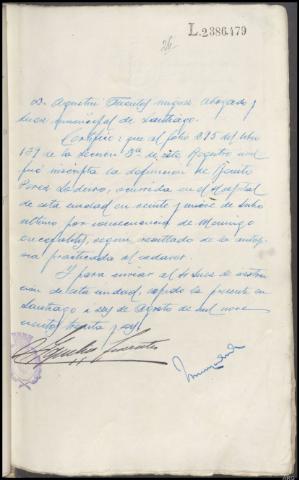 L.2386.479
26
D. Agustin Fuentes Miguez Abogado y
Juez municipal de Santiago.
Certifico: que al folio 215 del libro
139 de la Sección 3ª de este Registro civil
fué inscripta la defuncion de Benito
Perez, ocurrida en el Hospital
de esta ciudad en veinte y nueve de Julio
ultimo por consecuencia de Meningo
encefalitis, segun resultado de la autop
sia practicada al cadaver.
Y para enviar al de instruc
cion de esta ciudad, expido la presente en
Santiago a seis de Agosto de mil nove
cientos treinta y seis.
Fuentes